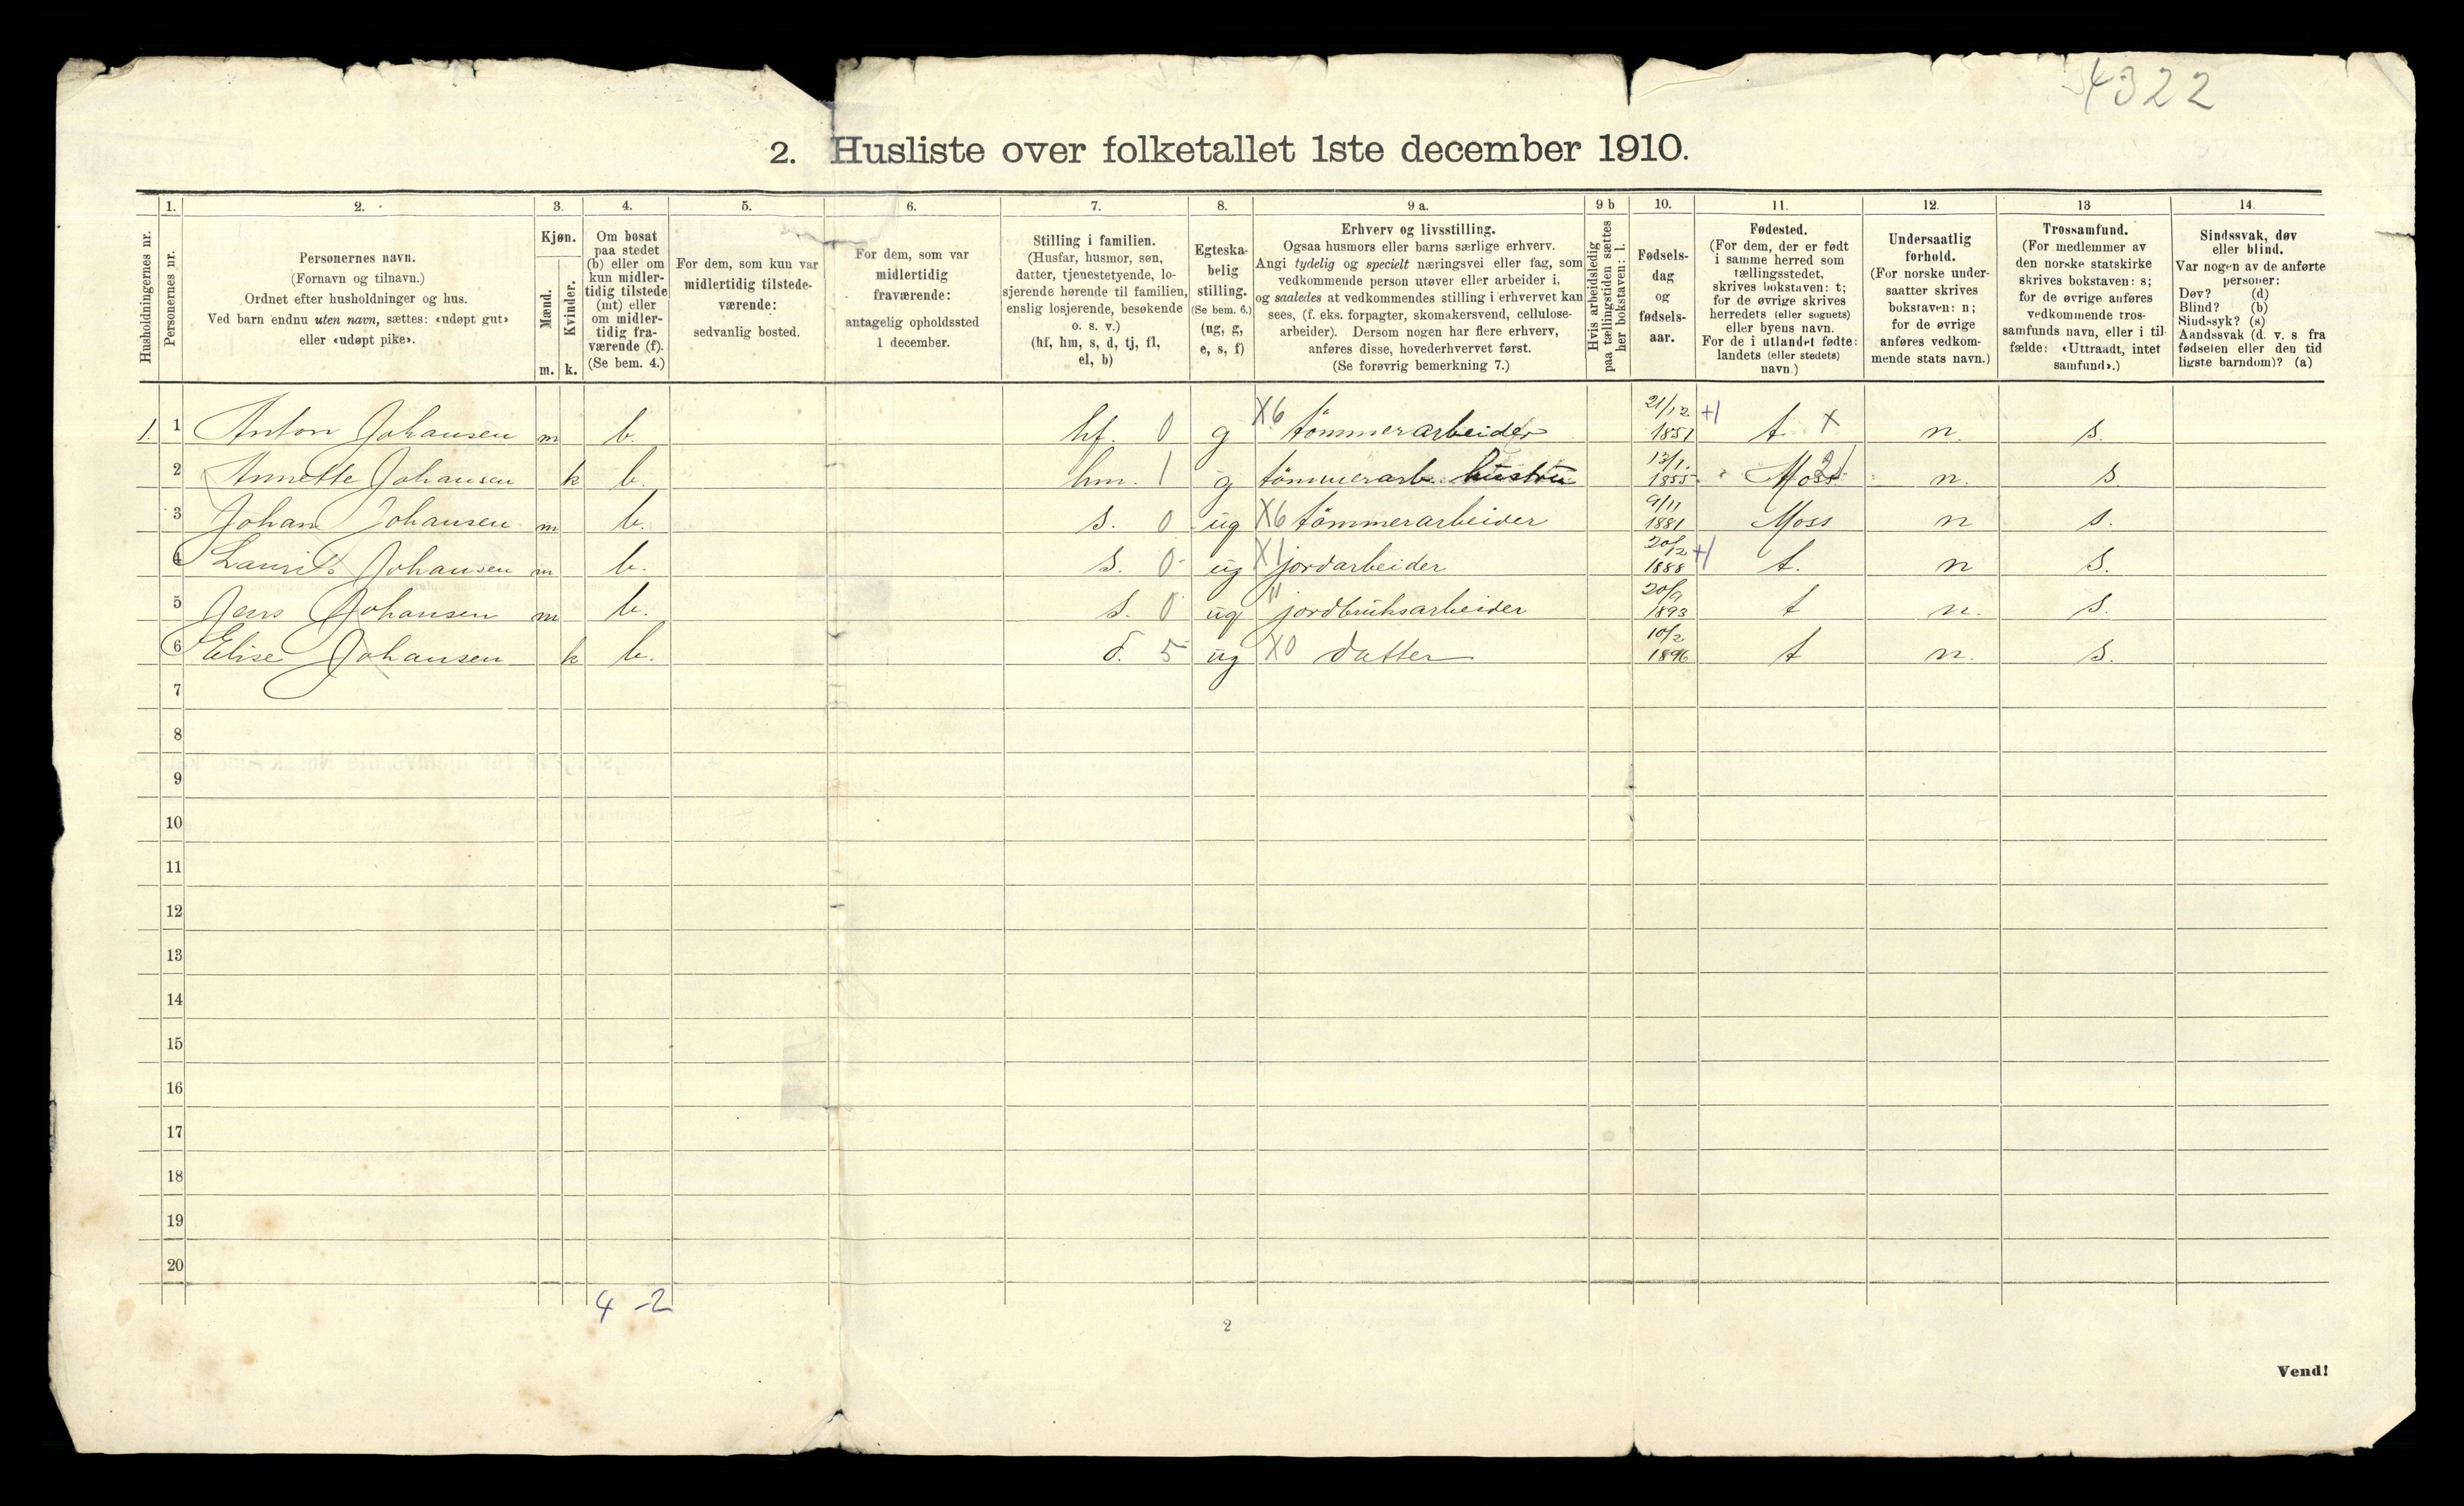 4322
2. Husliste over folketallet 1ste december 1910.
1. 2. 3. 4. 5. 6. 7. 8. 9 a. 9 b 10. 11. 12. 13 14.
Husholdningernes nr.
Personernes nr.
Personernes navn.
(Fornavn og tilnavn.)
Ordnet efter husholdninger og hus.
Ved barn endnu uten navn, sættes: «udøpt gut»
eller «udøpt pike».
Kjøn.
Mænd.
Kvinder.
m. k.
Om bosat
paa stedet
(b) eller om
kun midler-
tidig tilstede
(mt) eller
om midler-
tidig fra-
værende (f).
(Se bem. 4.)
For dem, som kun var
midlertidig tilstede-
værende:
sedvanlig bosted.
For dem, som var
midlertidig
fraværende:
antagelig opholdssted
1 december.
Stilling i familien.
(Husfar, husmor, søn,
datter, tjenestetyende, lo-
sjerende hørende til familien,
enslig losjerende, besøkende
o. s. v.)
(hf, hm, s, d, tj, fl,
el, b)
Egteska-
belig
stilling.
(Se bem. 6.)
(ug, g,
e, s, f)
Erhverv og livsstilling.
Ogsaa husmors eller barns særlige erhverv.
Angi tydelig og specielt næringsvei eller fag, som
vedkommende person utøver eller arbeider i,
og saaledes at vedkommendes stilling i erhvervet kan
sees, (f. eks. forpagter, skomakersvend, cellulose-
arbeider). Dersom nogen har flere erhverv,
anføres disse, hovederhvervet først.
(Se forøvrig bemerkning 7.)
Hvis arbeidsledig
paa tællingstiden sættes
her bokstaven: l.
Fødsels-
dag
og
fødsels-
aar.
Fødested.
(For dem, der er født
i samme herred som
tællingsstedet,
skrives bokstaven: t;
for de øvrige skrives
herredets (eller sognets)
eller byens navn.
For de i utlandet fødte:
landets (eller stedets)
navn.)
Undersaatlig
forhold.
(For norske under-
saatter skrives
bokstaven: n;
for de øvrige
anføres vedkom-
mende stats navn.)
Trossamfund.
(For medlemmer av
den norske statskirke
skrives bokstaven: s;
for de øvrige anføres
vedkommende tros-
samfunds navn, eller i til-
fælde: «Uttraadt, intet
samfund».)
Sindssvak, døv
eller blind.
Var nogen av de anførte
personer:
Døv? (d)
Blind? (b)
Sindssyk? (s)
Aandssvak (d. v. s fra
fødselen eller den tid
ligste barndom)? (a)
1. 1 Anton Johansen m b. hf. 0 g X6 tömmerarbeider 21/12 1851 +1 t. X n. s.
2 Annette Johansen k b. hm. 1 g tömmerarb. hustru 13/1. 1855 Moss n. s.
3 Johan Johansen m b. s. 0 ug X6 tömmerarbeider 9/11 1881 Moss n s.
4 Laurits Johansen m b. s. 0 ug X1 jordarbeider 20/12 1888 +1 t. n s.
5 Jens Johansen m b. s. 0 ug " jordbruksarbeider 20/9 1893 t n. s.
6 Elise Johansen k b. d. 5 ug X0 datter 10/2 1896 t n. s.
7
8
9
10
11
12
13
14
15
16
17
18
19
20
4 - 2
2
Vend!